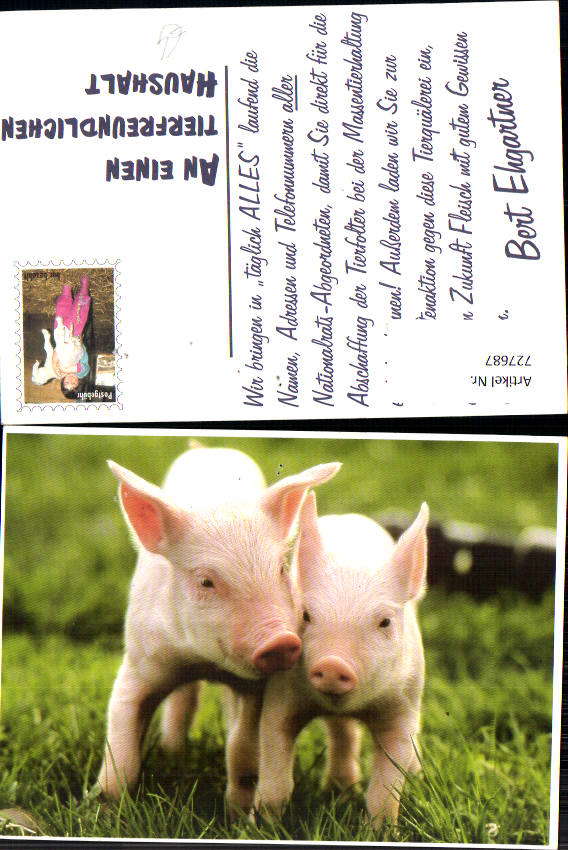 Wir bringen in „täglich ALLES" laufend die
Namen, Adressen und Telefonnummern aller
Nationalrats-Abgeordneten, damit Sie direkt für die
Abschaffung der Tierfolter bei der Massentierhaltung
men! Außerdem laden wir Sie zur
enaktion gegen diese Tierquälerei ein,
n Zukunft Fleisch mit gutem Gewissen
Bert Ehgartner
AN EINEN
TIERFREUNDLICHEN
HAUSHALT
Postgebühr
bar bezahlt
Artikel Nr.
727687